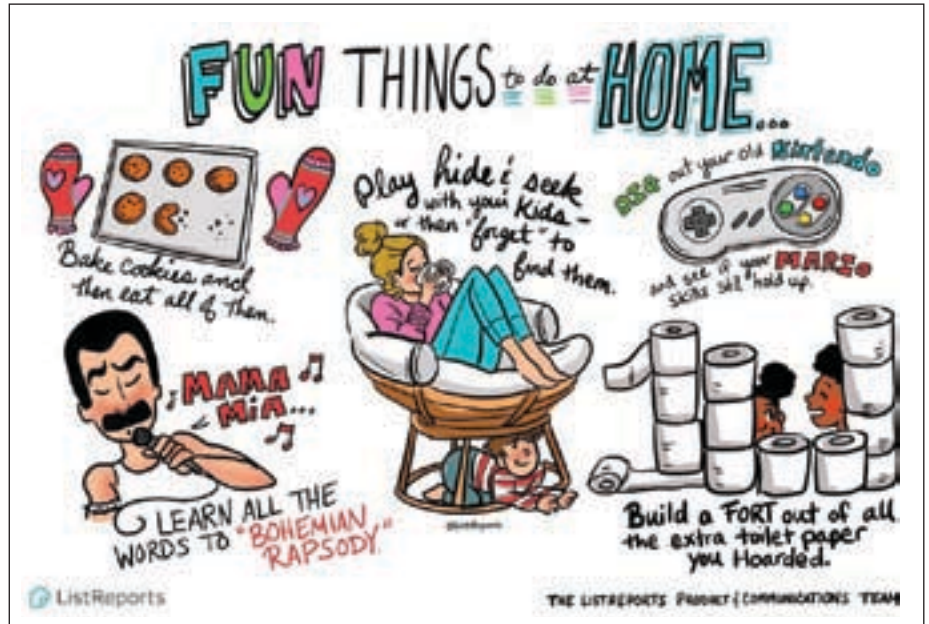 FUN THINGS to do at HOME...
Bake cookies and
then eat all of them.
Play hide & seek
with your kids -
or then "forget" to
find them.
DIG out your old Nintendo
and see if your MARIO
skills still hold up.
MAMA
MIA...
LEARN ALL THE
WORDS TO "BOHEMIAN
RAPSODY."
Build a FORT out of all
the extra toilet paper
you Hoarded.
@ListReports
ListReports
THE LISTREPORTS PRODUCT & COMMUNICATIONS TEAM